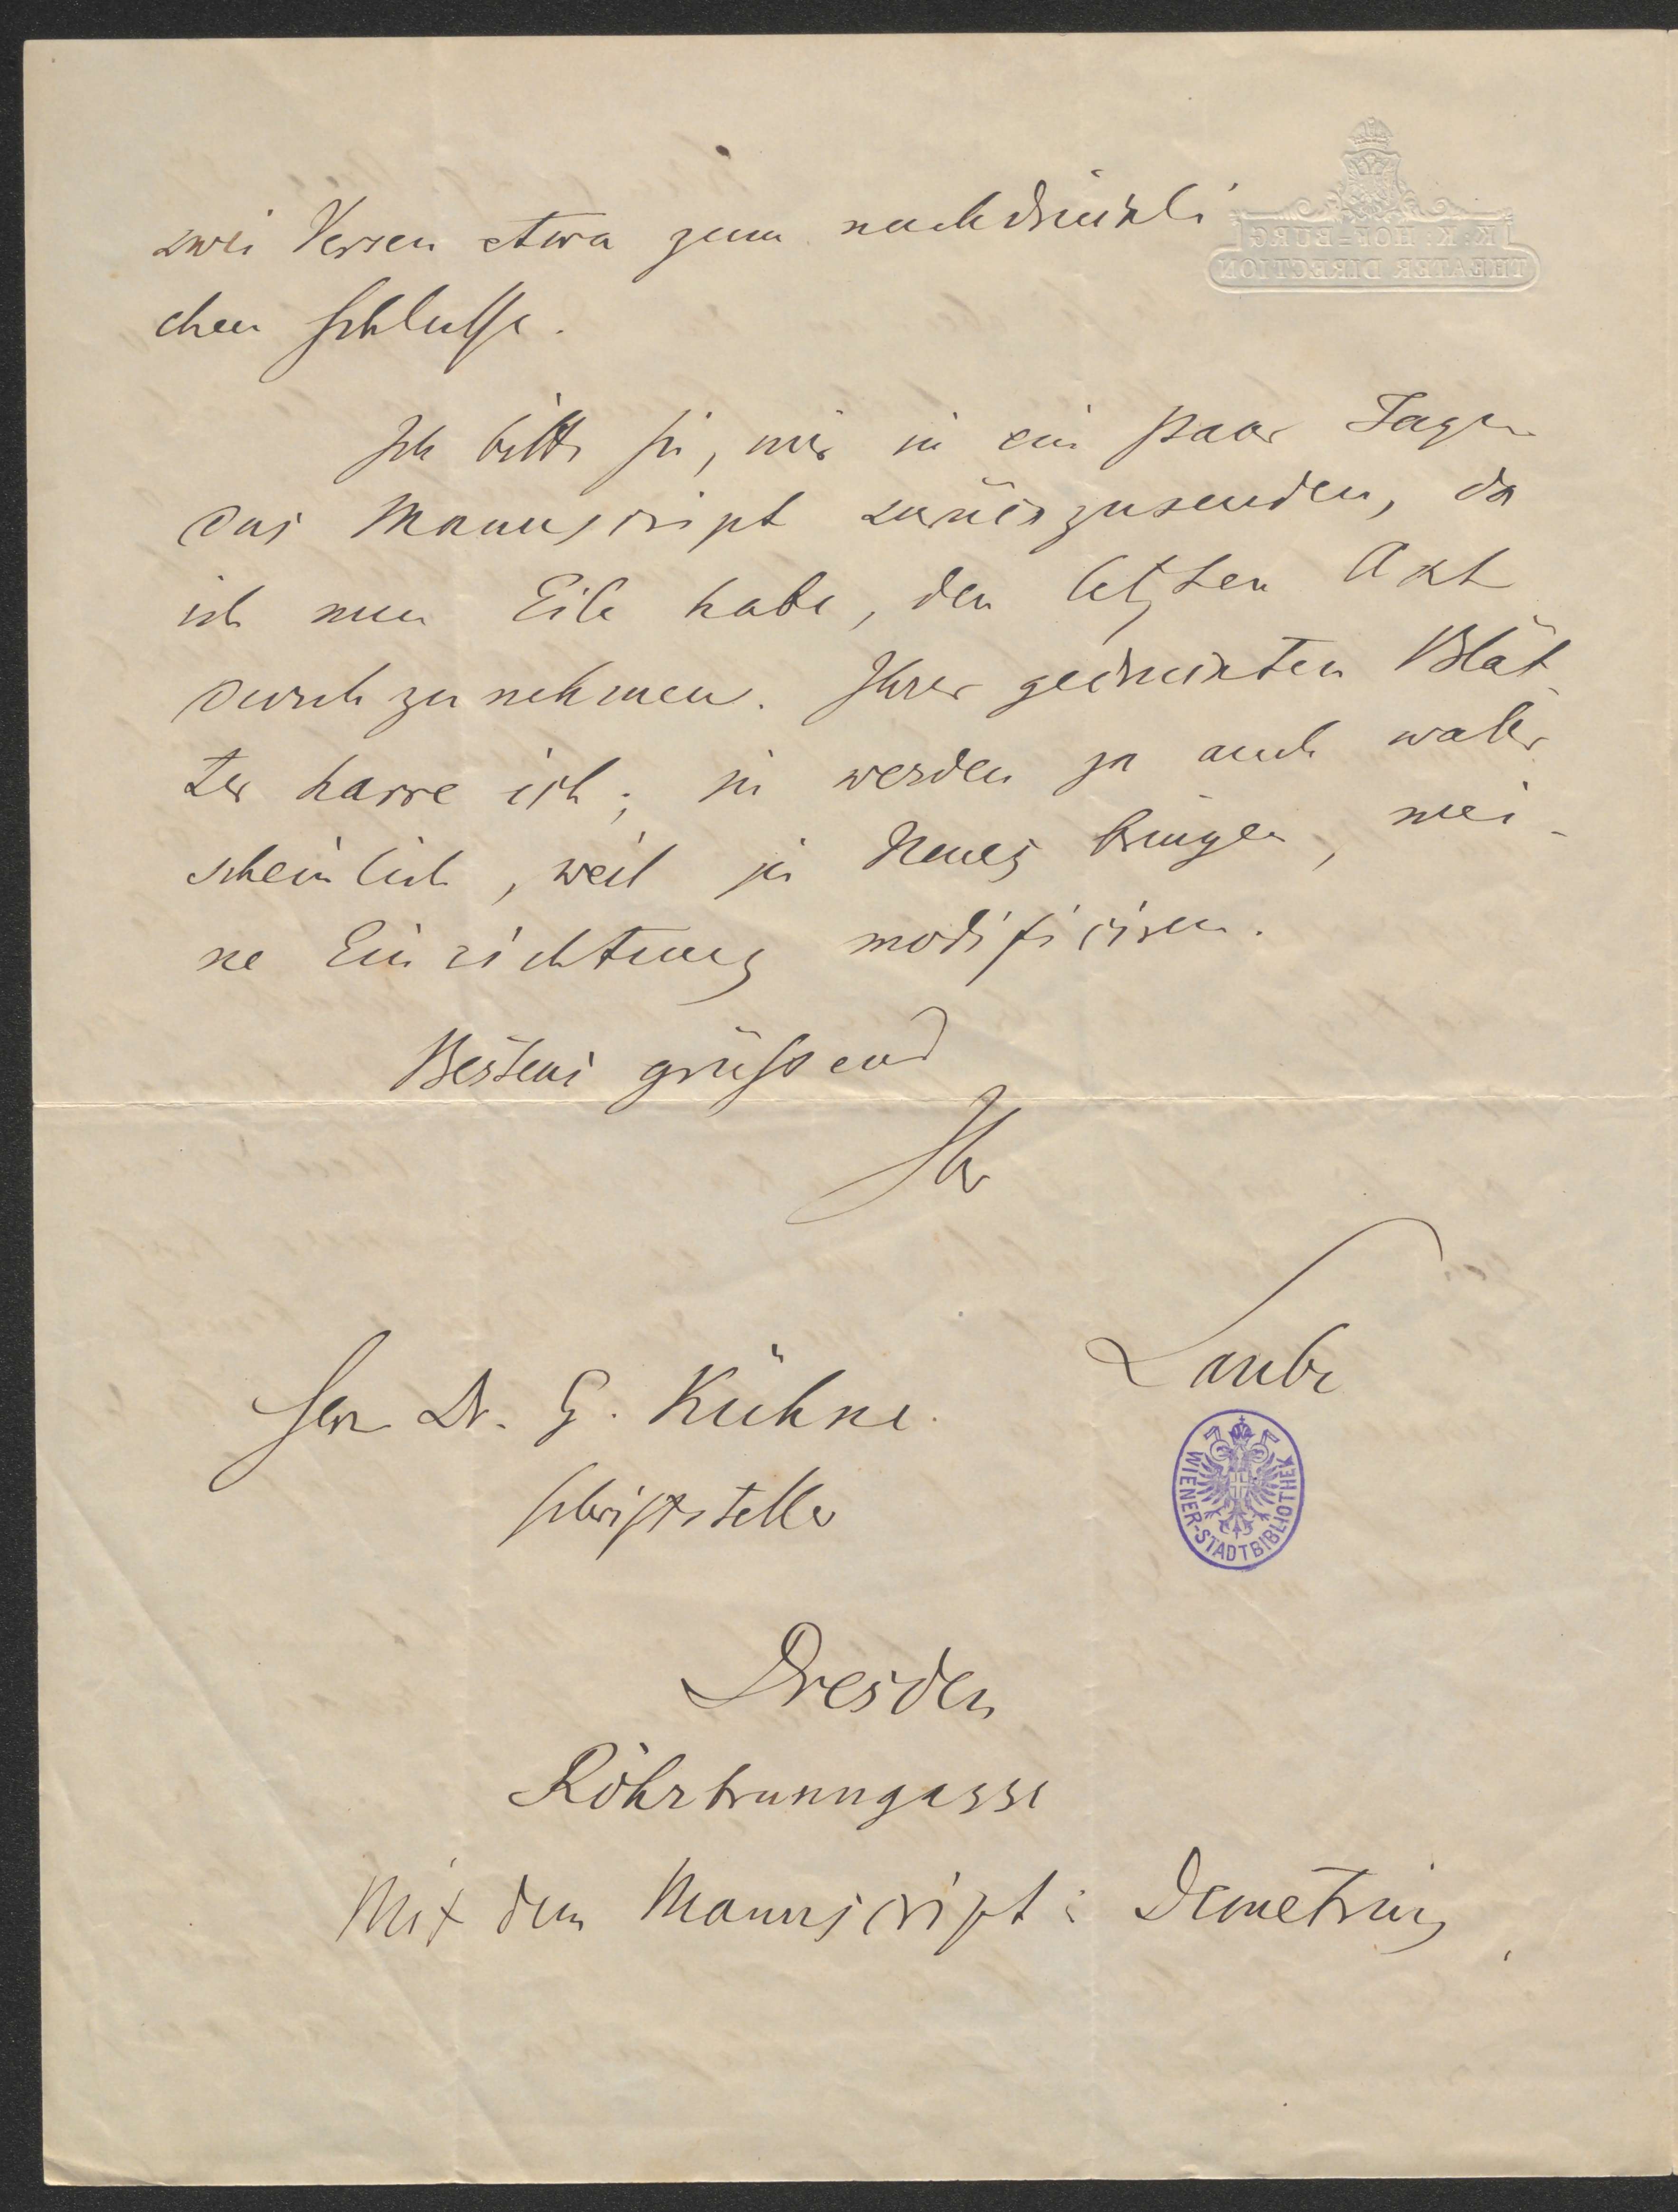 K: K: HOF=BURG
THEATER DIRECTION
zwei Versen etwa zum nachdrückli
chen Schlusse.
Ich bitte Sie, mir in ein paar Tagen
das Manuscript zurückzusenden, da
ich nun Eile habe, den letzten Akt
durchzunehmen. Ihrer gedruckten Blät
ter harre ich; sie werden ja auch wahr
scheinlich, weil sie Neues bringen, mei-
ne Einrichtung modificiren.
Bestens grüßend
Ihr
Laube
Herr Dr. G. Kühne.
Schriftsteller
WIENER-STADTBIBLIOTHEK
Dresden
Röhrbrunngasse
Mit dem Manuscript: Demetrius